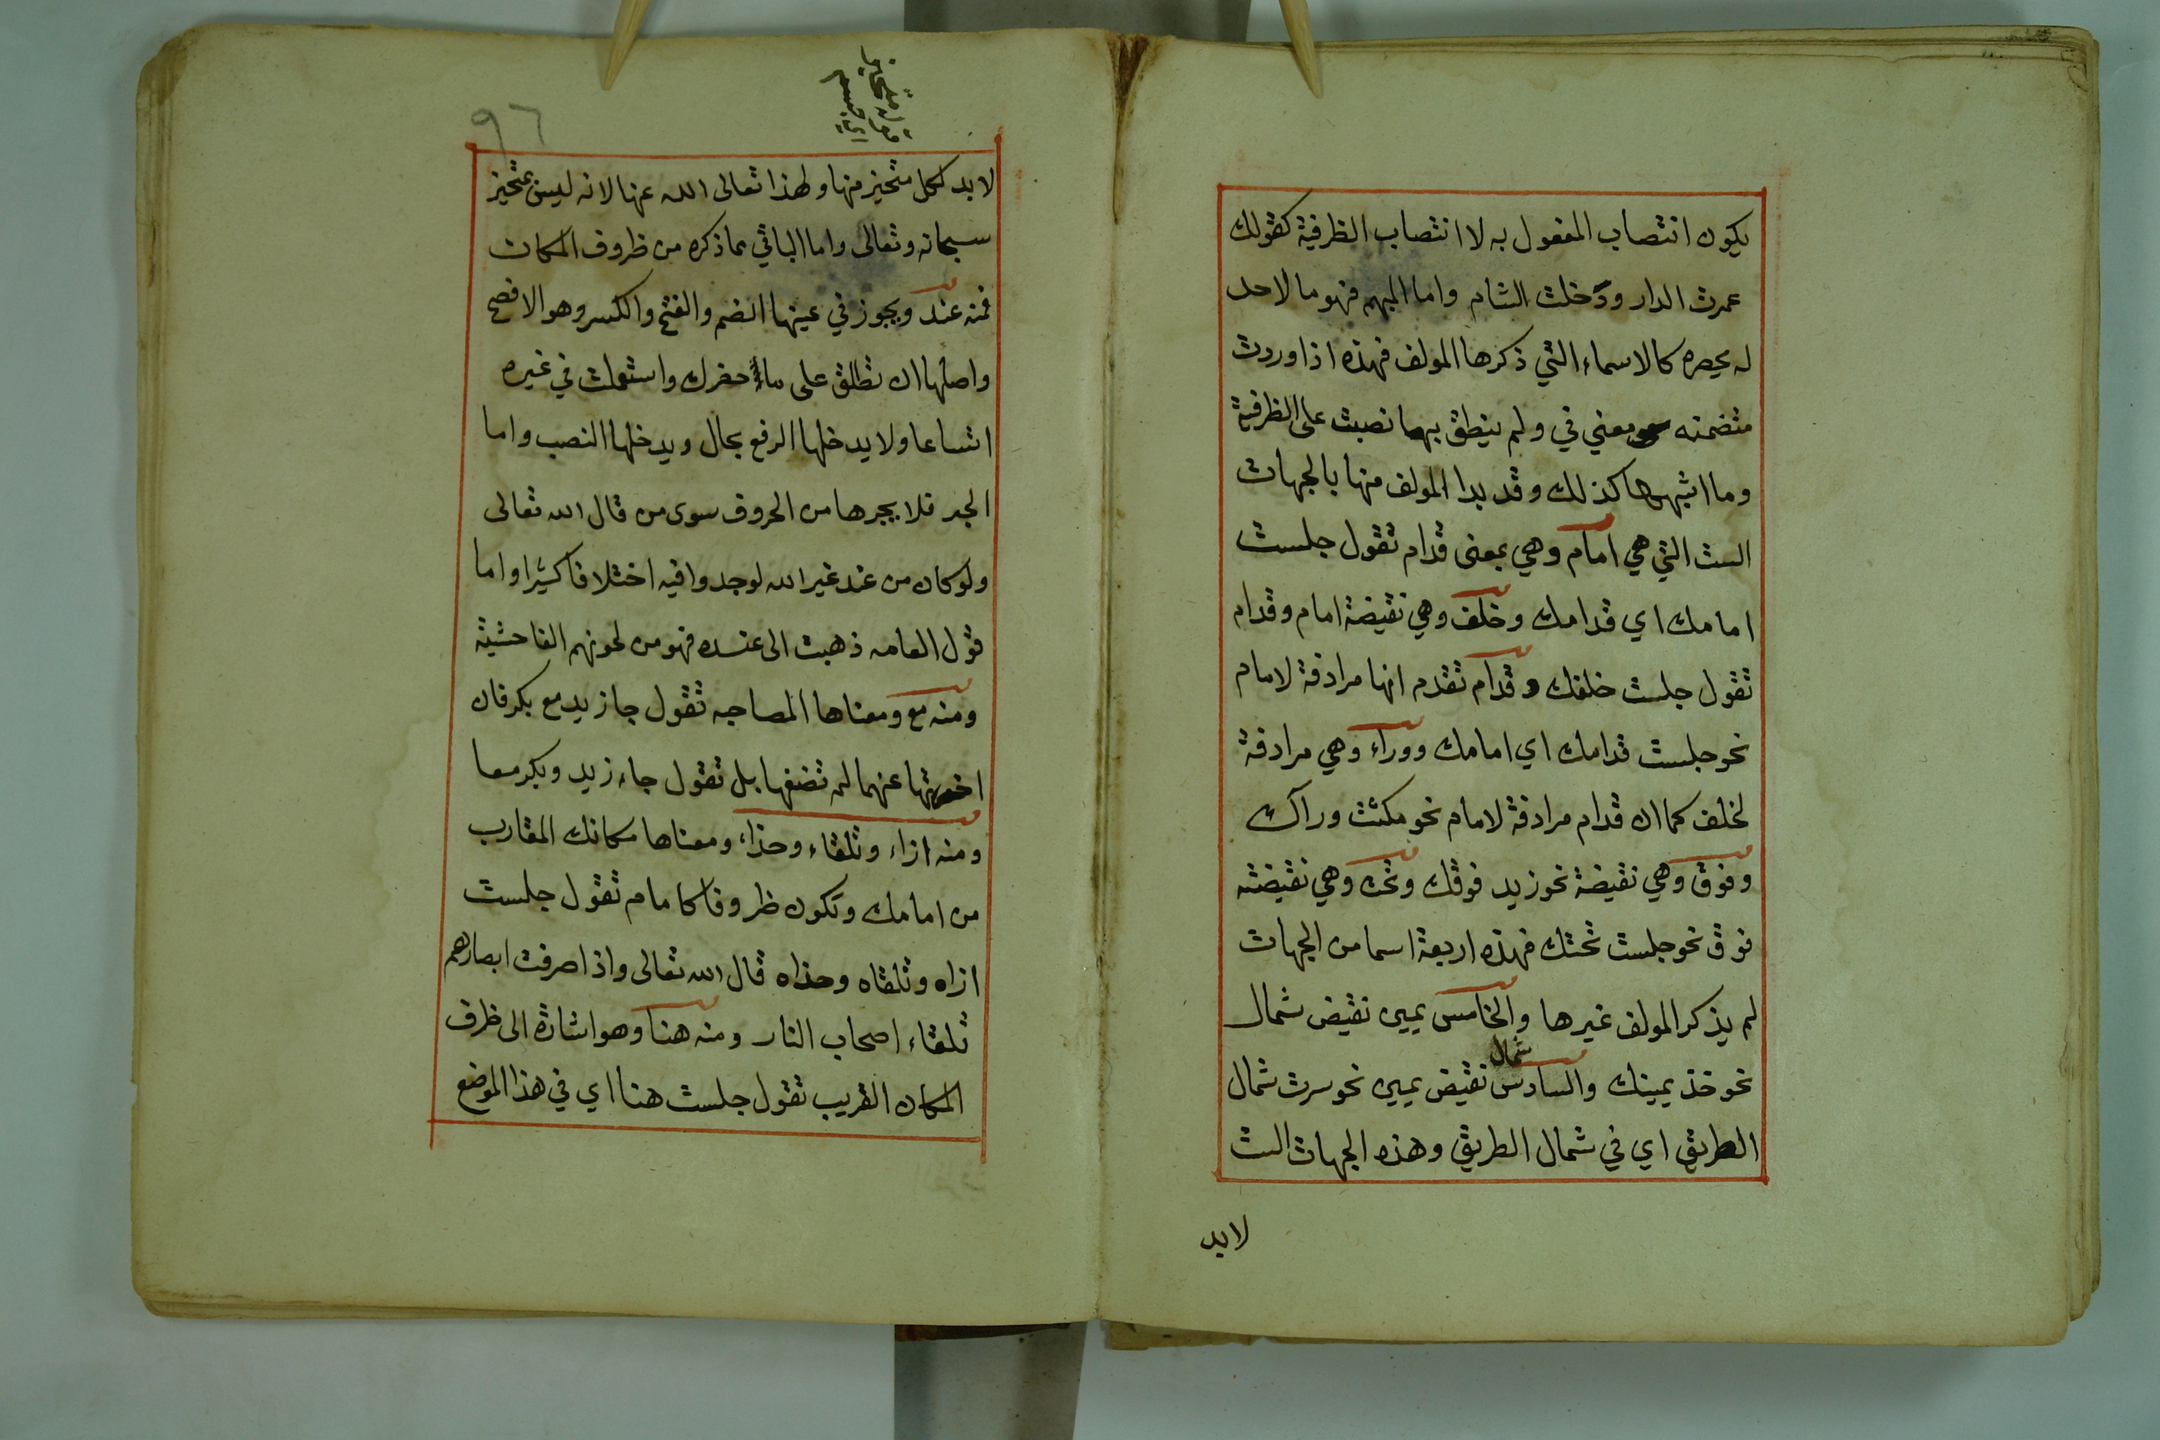 يكون انتصاب المفعول به لا انتصاب الظرفية كقولك
عمرت الدار ودخلت الشام واما المبهم فهو ما لا حد
له يحصره كالاسماء التي ذكرها المولف فهذه اذا وردت
متضمنه معني في ولم ينطق بها نصبت على الظرفية
وما اشبهها كذلك وقد بدا المولف منها بالجهات
الست التي هي امام وهي بمعنى قدام تقول جلست
امامك اي قدامك وخلف وهي نقيضة امام وقدام
تقول جلست خلفك وقدام تقدم انها مرادفة لامام
نحو جلست قدامك اي امامك ووراء وهي مرادفة
لخلف كما ان قدام مرادفة لامام نحو مكثت وراك
وفوق وهي نقيضة نحو زيد فوقك وتحت وهي نقيضته
فوق نحو جلست تحتك فهذه اربعة اسما من الجهات
لم يذكر المولف غيرها والخامس يمين نقيض شمال
شمال
نحو خذ يمينك والسادس نقيض يمين نحو سرت شمال
الطريق اي في شمال الطريق وهذه الجهات الست
لابد
96
قوله متحيز
اي جسم
لابد لكل متحيز منها ولهذا تعالى الله عنها لانه ليس بمتحيز
سبحانه وتعالى واما الباقي مما ذكره من ظروف المكان
فمنه عند ويجوز في عينها الضم والفتح والكسر وهو الافصح
واصلها ان تطلق على ما حضرك واستعملت في غيره
اتساعا ولا يدخلها الرفع بحال ويدخلها النصب واما
الجر فلا يجرها من الحروف سوى من قال الله تعالى
ولو كان من عند غير الله لوجدوا فيه اختلافا كثيرا واما
قول العامه ذهبت الى عنده فهو من لحونهم الفاحشيه
ومنه مع ومعناها المصاحبه تقول جا زيد مع بكر فان
اخرتها عنهما لم تضفها بل تقول جاء زيد وبكر معا
ومنه ازاء وتلقاء وحذاء ومعناها مكانك المقارب
من امامك وتكون ظروفا كامام تقول جلست
ازاه وتلقاه وحذاه قال الله تعالى واذا صرفت ابصارهم
تلقاء اصحاب النار ومنه هنا وهو اشارة الى ظرف
المكان القريب تقول جلست هنا اي في هذا الموضع